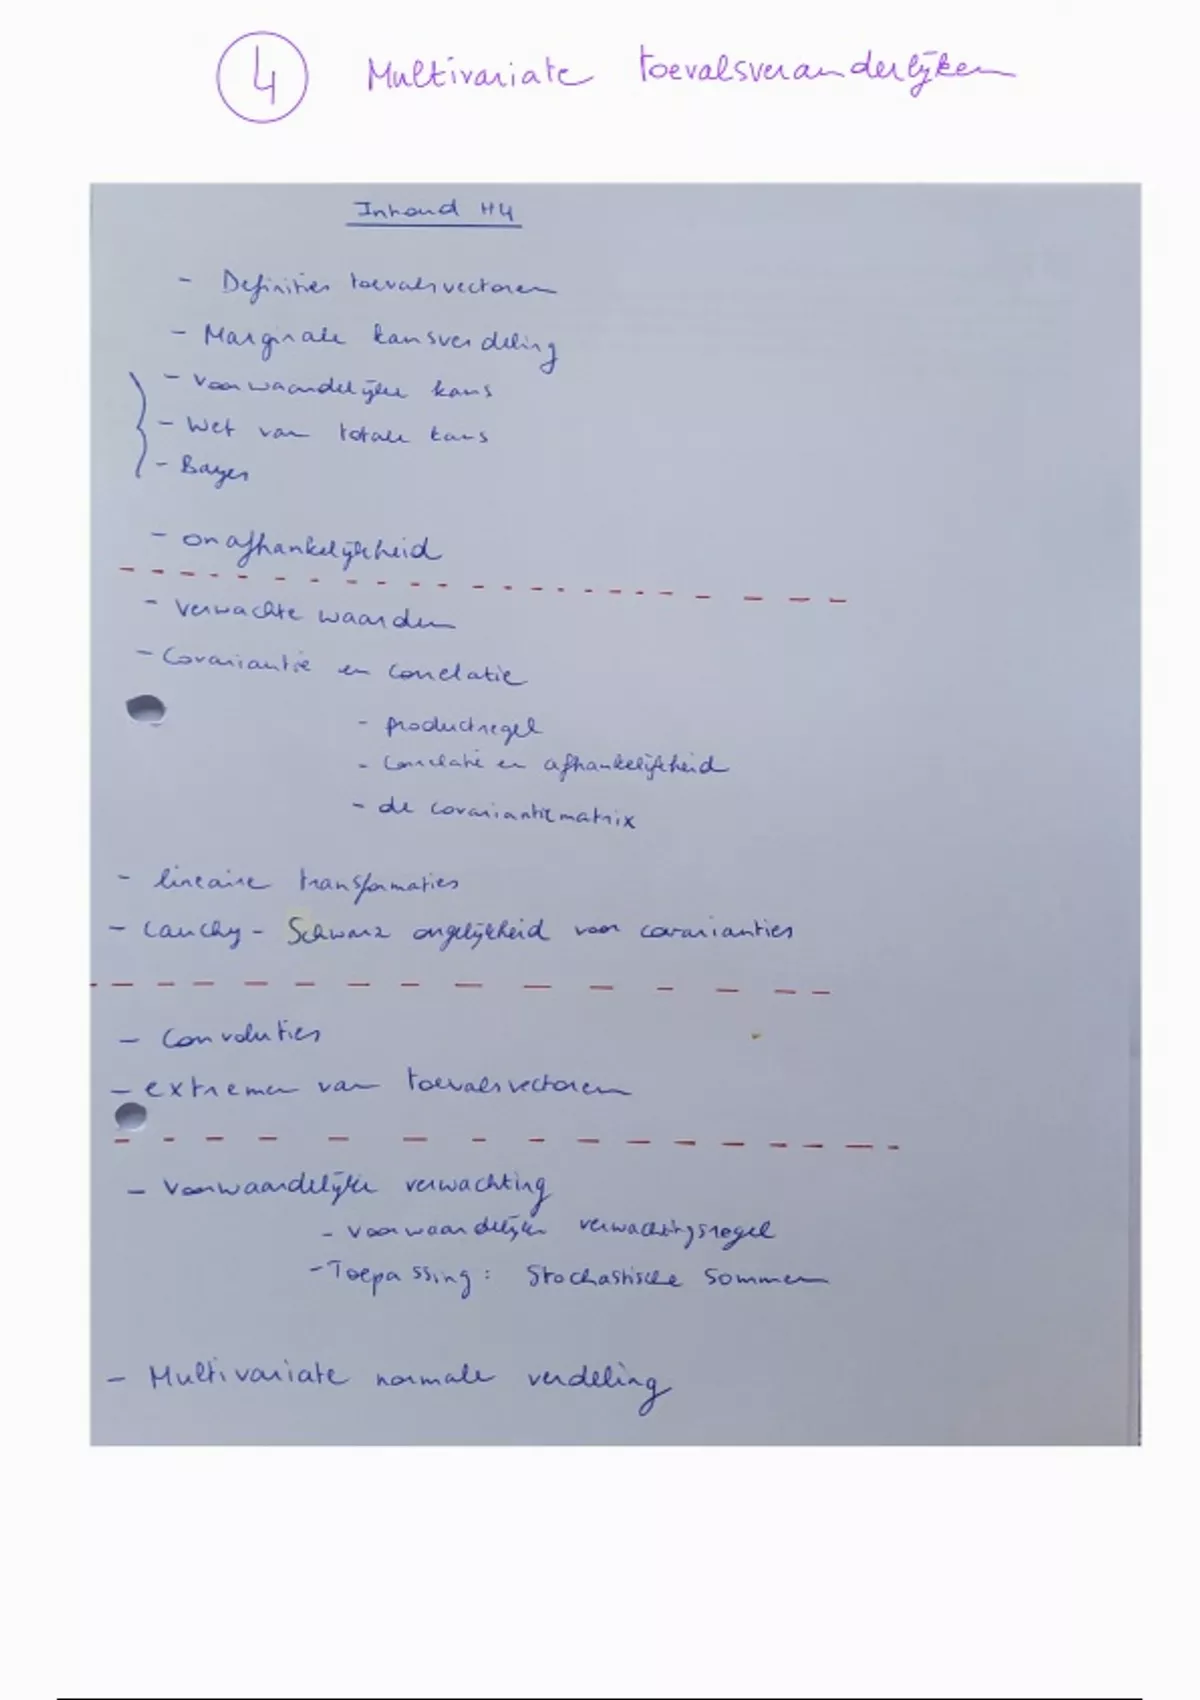 4 Multivariate toevalsveranderlijken
Inhoud H4
- Definities toevalsvectoren
- Marginale kansverdeling
- Voorwaardelijke kans
- Wet van totale kans
- Bayes
- onafhankelijkheid
- verwachte waarden
- Covariantie en correlatie
- productregel
- correlatie en afhankelijkheid
- de covariantiematrix
- lineaire transformaties
- Cauchy - Schwarz ongelijkheid voor covarianties
- Convoluties
- extremen van toevalsvectoren
- Voorwaardelijke verwachting
- voorwaardelijke verwachtingsregel
- Toepassing : Stochastische sommen
- Multivariate normale verdeling